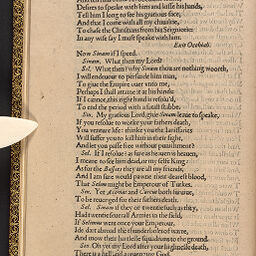 Desires to speake with him and kisse his hands,
Tell him I long to see his gracious face,
And that I come with all my chiualrie,
To chase the Christians from his Seigniories:
In any say I must speake with him.
Exit
Now Sinam if I speed.
Sinam. What then my Lord?
Sel. What then? why Sinam thou art nothing woorth,
I will endeuour to perswade him man,
To giue the Empire ouer vnto me,
Perhaps I shall attaine it at his hands:
If I cannot, this right hand is resolu'd,
To end the period with a fatall stabbe.
Sin. My gracious Lord, giue Sinam leaue to speake,
If you resolue to worke your fathers death,
You venture life: thinke you the Ianissaries
Will suffer you to kill him in their sight,
And let you passe free without punishment?
Sel. If I resolue? as sure as heauen is heauen,
I meane to see him dead, or my selfe King:
As for the Bassaes they are all my friends,
And I am sure would pawne their dearest blood,
That Selim might be Emperour of Turkes.
Sin. Yet Acomat and Corcut both suruiue,
To be reuenged for their fathers death.
Sel. Sinam if they or twentie such as they,
Had twentie seuerall Armies in the field,
If Selimus were once your Emperour,
Ide dart abroad the thunderbolts of warre,
And mow their hartlesse squadrons to the ground.
Sin. Oh yet my Lord after your highnesse death,
There is a hell and a reuenging God.